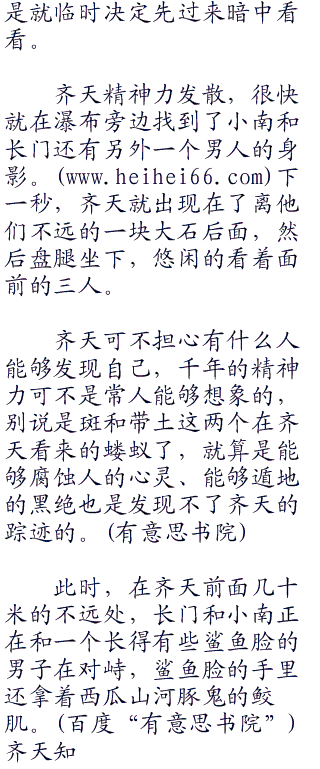 是就临时决定先过来暗中看
看。
齐天精神力发散，很快
就在瀑布旁边找到了小南和
长门还有另外一个男人的身
影。(www.heihei66.com)下
一秒，齐天就出现在了离他
们不远的一块大石后面，然
后盘腿坐下，悠闲的看着面
前的三人。
齐天可不担心有什么人
能够发现自己，千年的精神
力可不是常人能够想象的，
别说是斑和带土这两个在齐
天看来的蝼蚁了，就算是能
够腐蚀人的心灵、能够遁地
的黑绝也是发现不了齐天的
踪迹的。(有意思书院)
此时，在齐天前面几十
米的不远处，长门和小南正
在和一个长得有些鲨鱼脸的
男子在对峙，鲨鱼脸的手里
还拿着西瓜山河豚鬼的鲛
肌。(百度“有意思书院”)
齐天知